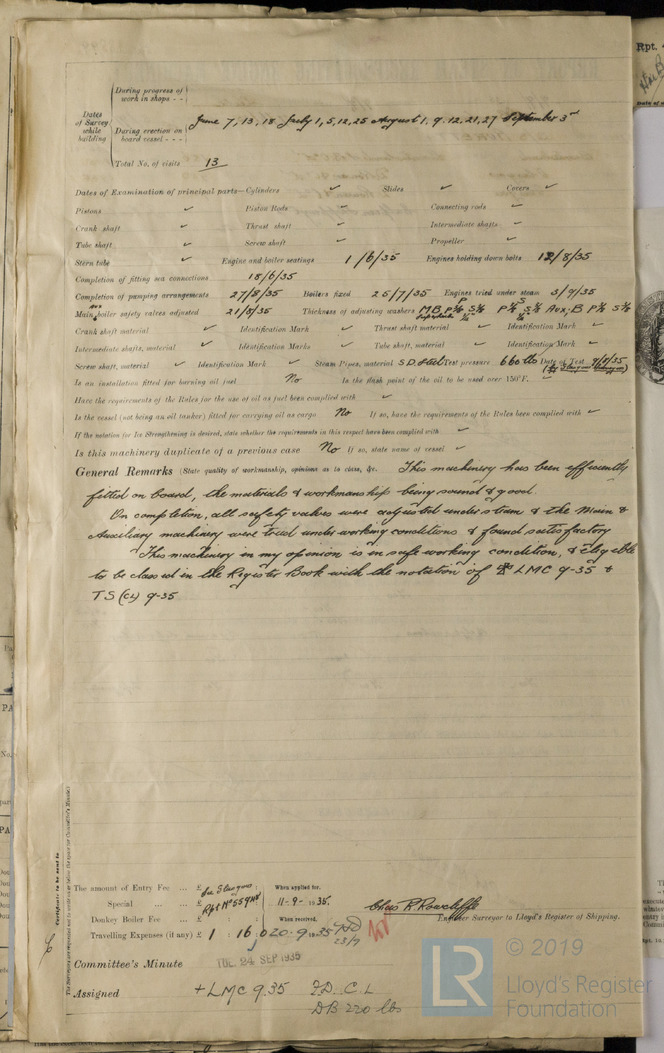 Dates of Survey while building
During progress of work in shops - -
During erection on board vessel - - -
June 7, 13, 18 July 1, 5, 12, 25 August 1, 9, 12, 21, 27 September 3rd
Total No. of visits 13
Dates of Examination of principal parts—Cylinders ✓ Slides ✓ Covers ✓
Pistons ✓ Piston Rods ✓ Connecting rods ✓
Crank shaft ✓ Thrust shaft ✓ Intermediate shafts ✓
Tube shaft ✓ Screw shaft ✓ Propeller ✓
Stern tube ✓ Engine and boiler seatings 1/6/35 Engines holding down bolts 12/8/35
Completion of fitting sea connections 18/6/35
Completion of pumping arrangements 27/8/35 Boilers fixed 25/7/35 Engines tried under steam 3/9/35
Main, boiler safety valves adjusted 21/8/35 Thickness of adjusting washers
Crank shaft material ✓ Identification Mark ✓ Thrust shaft material ✓ Identification Mark ✓
Intermediate shafts, material ✓ Identification Marks ✓ Tube shaft, material ✓ Identification Mark ✓
Screw shaft, material ✓ Identification Mark ✓ Steam Pipes, material S.D. Steel Test pressure 660 lbs Date of Test
Is an installation fitted for burning oil fuel No Is the flash point of the oil to be used over 150°F. ✓
Have the requirements of the Rules for the use of oil as fuel been complied with ✓
Is the vessel (not being an oil tanker) fitted for carrying oil as cargo No If so, have the requirements of the Rules been complied with ✓
If the notation for Ice Strengthening is desired, state whether the requirements in this respect have been complied with ✓
Is this machinery duplicate of a previous case No If so, state name of vessel ✓
General Remarks (State quality of workmanship, opinions as to class, &c. This machinery has been efficiently
fitted on board, the materials & workmanship being sound & good.
On completion, all safety valves were adjusted under steam & the Main &
Auxiliary machinery were tried under working conditions & found satisfactory
This machinery in my opinion is in safe working condition, & Eligible
to be classed in the Register Book with the notation of LMC 9-35 &
TS (CL) 9-35
Certificate to be sent to
The amount of Entry Fee ... £ See Glasgow : When applied for,
Special ... ... £ Rpt No 55948 11-9-1935.
Donkey Boiler Fee ... £ : : When received,
Travelling Expenses (if any) £ 1 : 16 : 0 20.9.1935
23/9
Chas R. Rowcliffe
Engineer Surveyor to Lloyd's Register of Shipping.
Committee's Minute TUE. 24 SEP 1935
Assigned + LMC 9.35 F.D. C.L
DB 220 lbs
LR
© 2019
Lloyd's Register
Foundation
Rpt.